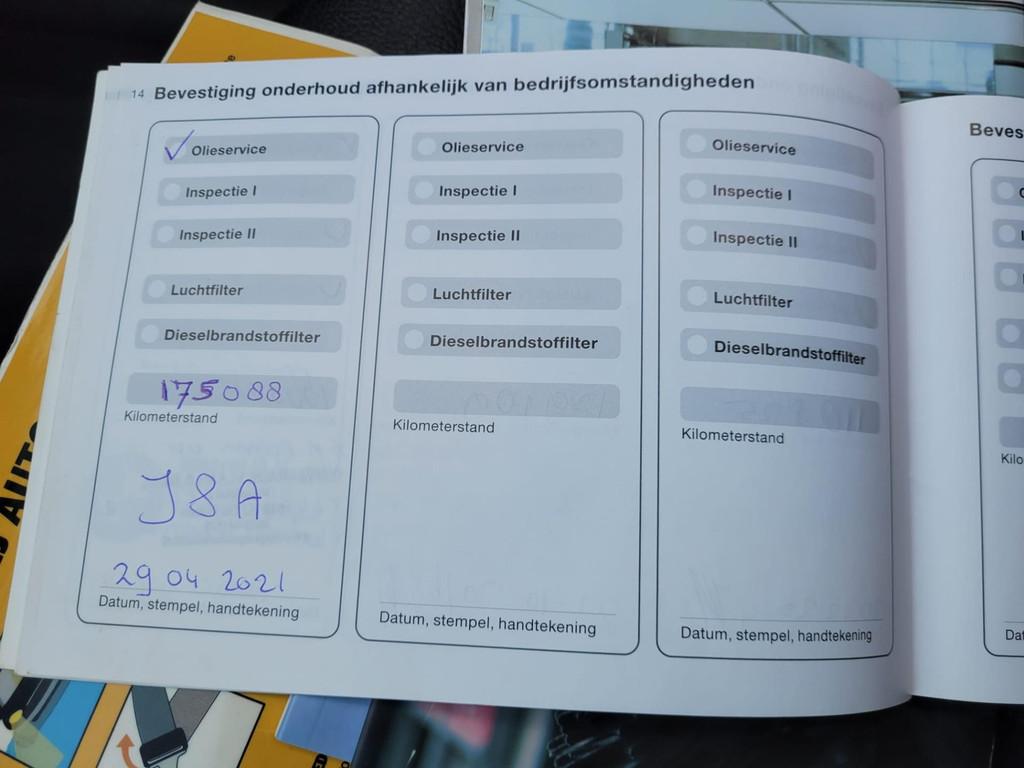 14 Bevestiging onderhoud afhankelijk van bedrijfsomstandigheden
Olieservice
Inspectie I
Inspectie II
Luchtfilter
Dieselbrandstoffilter
175088
Kilometerstand
J8A
29 04 2021
Datum, stempel, handtekening
Olieservice
Inspectie I
Inspectie II
Luchtfilter
Dieselbrandstoffilter
Kilometerstand
Datum, stempel, handtekening
Olieservice
Inspectie I
Inspectie II
Luchtfilter
Dieselbrandstoffilter
Kilometerstand
Datum, stempel, handtekening
Beves
Kilo
Dat
AUTO